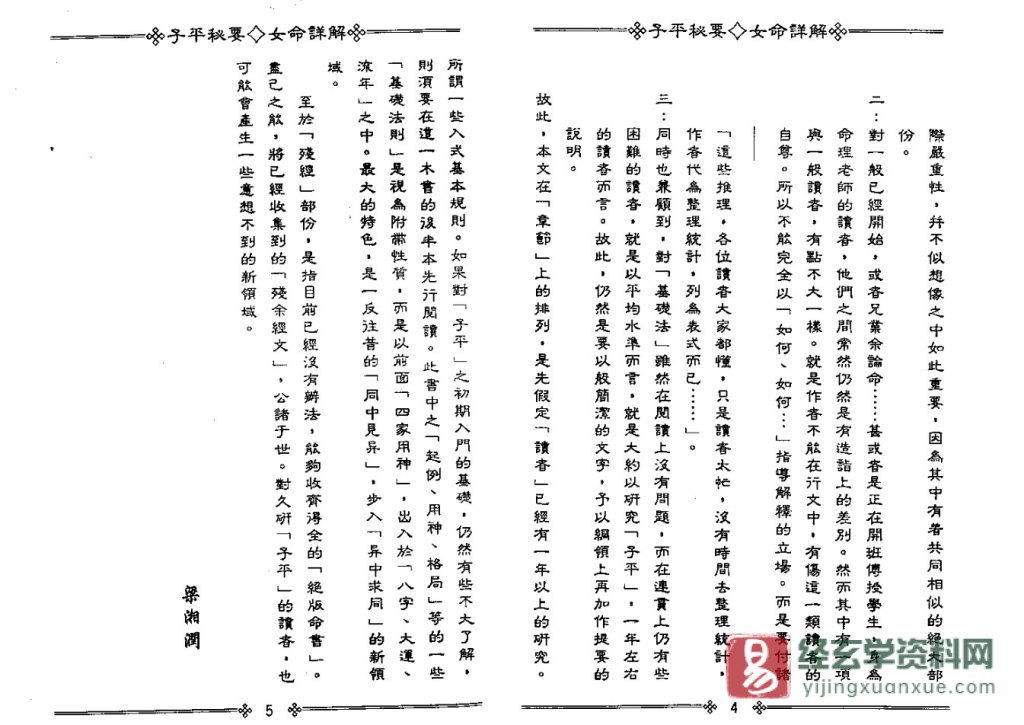 子平秘要◇女命詳解
際嚴重性，幷不似想像之中如此重要，因為其中有著共同相似的絕大部
份。
二：對一般已經開始，或者兄業余論命……甚或者是正在開班傳授學生，身為
命理老師的讀者，他們之間常然仍然是有造詣上的差別。然而其中有一項
與一般讀者，有點不大一樣。就是作者不能在行文中，有傷這一類讀者的
自尊。所以不能完全以「如何、如何…」指導解釋的立場。而是要付諸
「這些推理，各位讀者大家都懂，只是讀者太忙，沒有時間去整理統計，
作者代為整理統計，列為表式而已……」。
三：同時也兼顧到，對「基礎法」雖然在閱讀上沒有問題，而在連貫上仍有些
困難的讀者，就是以平均水準而言，就是大約以研究「子平」，一年左右
的讀者而言。故此，仍然是要以般簡潔的文字，予以綱領上再加作提要的
說明。
故此，本文在「章節」上的排列，是先假定「讀者」已經有一年以上的研究。
4
子平秘要◇女命詳解
所謂一些入式基本規則。如果對「子平」之初期入門的基礎，仍然有些不大了解，
則須要在這一木書的後半本先行閱讀。此書中之「起例、用神、格局」等的一些
「基礎法則」是視為附帶性質，而是以前面「四家用神」，出入於「八字、大運、
流年」之中。最大的特色，是一反往昔的「同中見异」，步入「异中求同」的新領
域。
至於「殘經」部份，是指目前已經沒有辦法，能夠收齊得全的「絕版命書」。
盡己之能，將已經收集到的「殘余經文」，公諸于世。對久研「子平」的讀者，也
可能會產生一些意想不到的新領域。
梁湘潤
5
易
经玄学资料网
yijingxuanxue.com